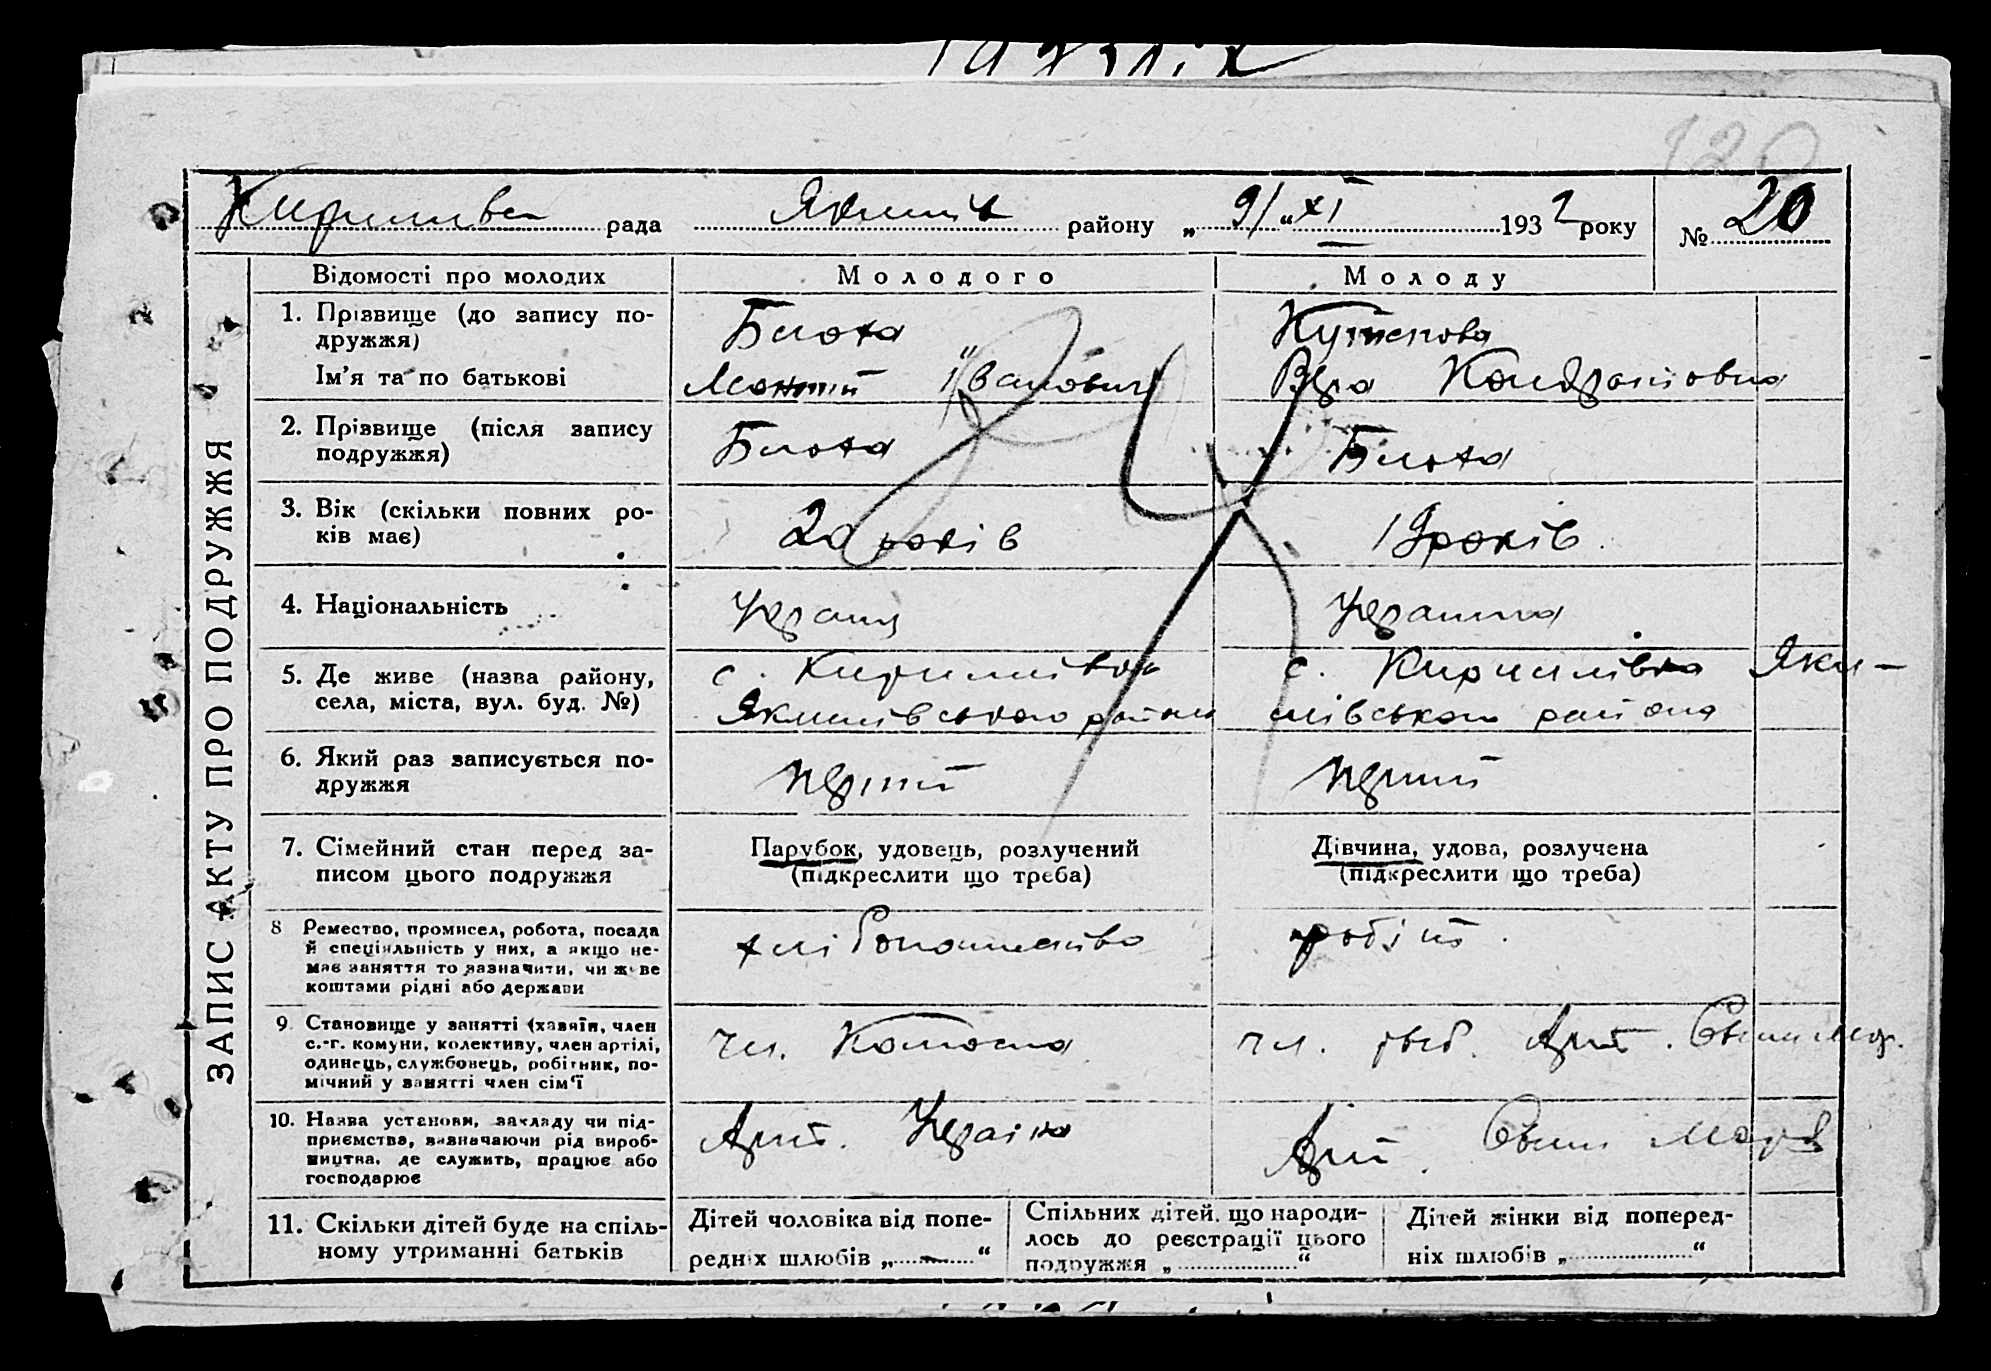 120
рада району „9/“ XI 1932 року № 20
ЗАПИС АКТУ ПРО ПОДРУЖЖЯ
Відомості про молодих Молодого Молоду
1. Прізвище (до запису по-
дружжя)
Ім'я та по батькові
Блоха
Іванович
Кутепова
Вера Кондратовна
2. Прізвище (після запису
подружжя)
Блоха
Блоха
3. Вік (скільки повних ро-
ків має)
20 років
19 років
4. Національність
Україн
Українка
5. Де живе (назва району,
села, міста, вул. буд. №)
с. Кирилівка
Якимівського району
с. Кирилівка Яки-
мівського району
6. Який раз записується по-
дружжя
перший
перший
7. Сімейний стан перед за-
писом цього подружжя
Парубок, удовець, розлучений
(підкреслити що треба)
Дівчина, удова, розлучена
(підкреслити що треба)
8 Ремество, промисел, робота, посада
й спеціяльність у них, а якщо не-
має заняття то зазначити, чи живе
коштами рідні або держави
хліборобство
робітн.
9. Становище у занятті (хазяїн, член
с.-г. комуни, колективу, член артілі,
одинець, службовець, робітник, по-
мічний у занятті член сім'ї
чл. Колгоспа
чл. риб. Арт.
10. Назва установи, закладу чи під-
приємства, визначаючи рід вироб-
ництва, де служить, працює або
господарює
Арт. Україна
Арт.
11. Скільки дітей буде на спіль-
ному утриманні батьків
Дітей чоловіка від попе-
редніх шлюбів „—“
Спільних дітей, що народи-
лось до реєстрації цього
подружжя „ “
Дітей жінки від поперед-
ніх шлюбів „ “